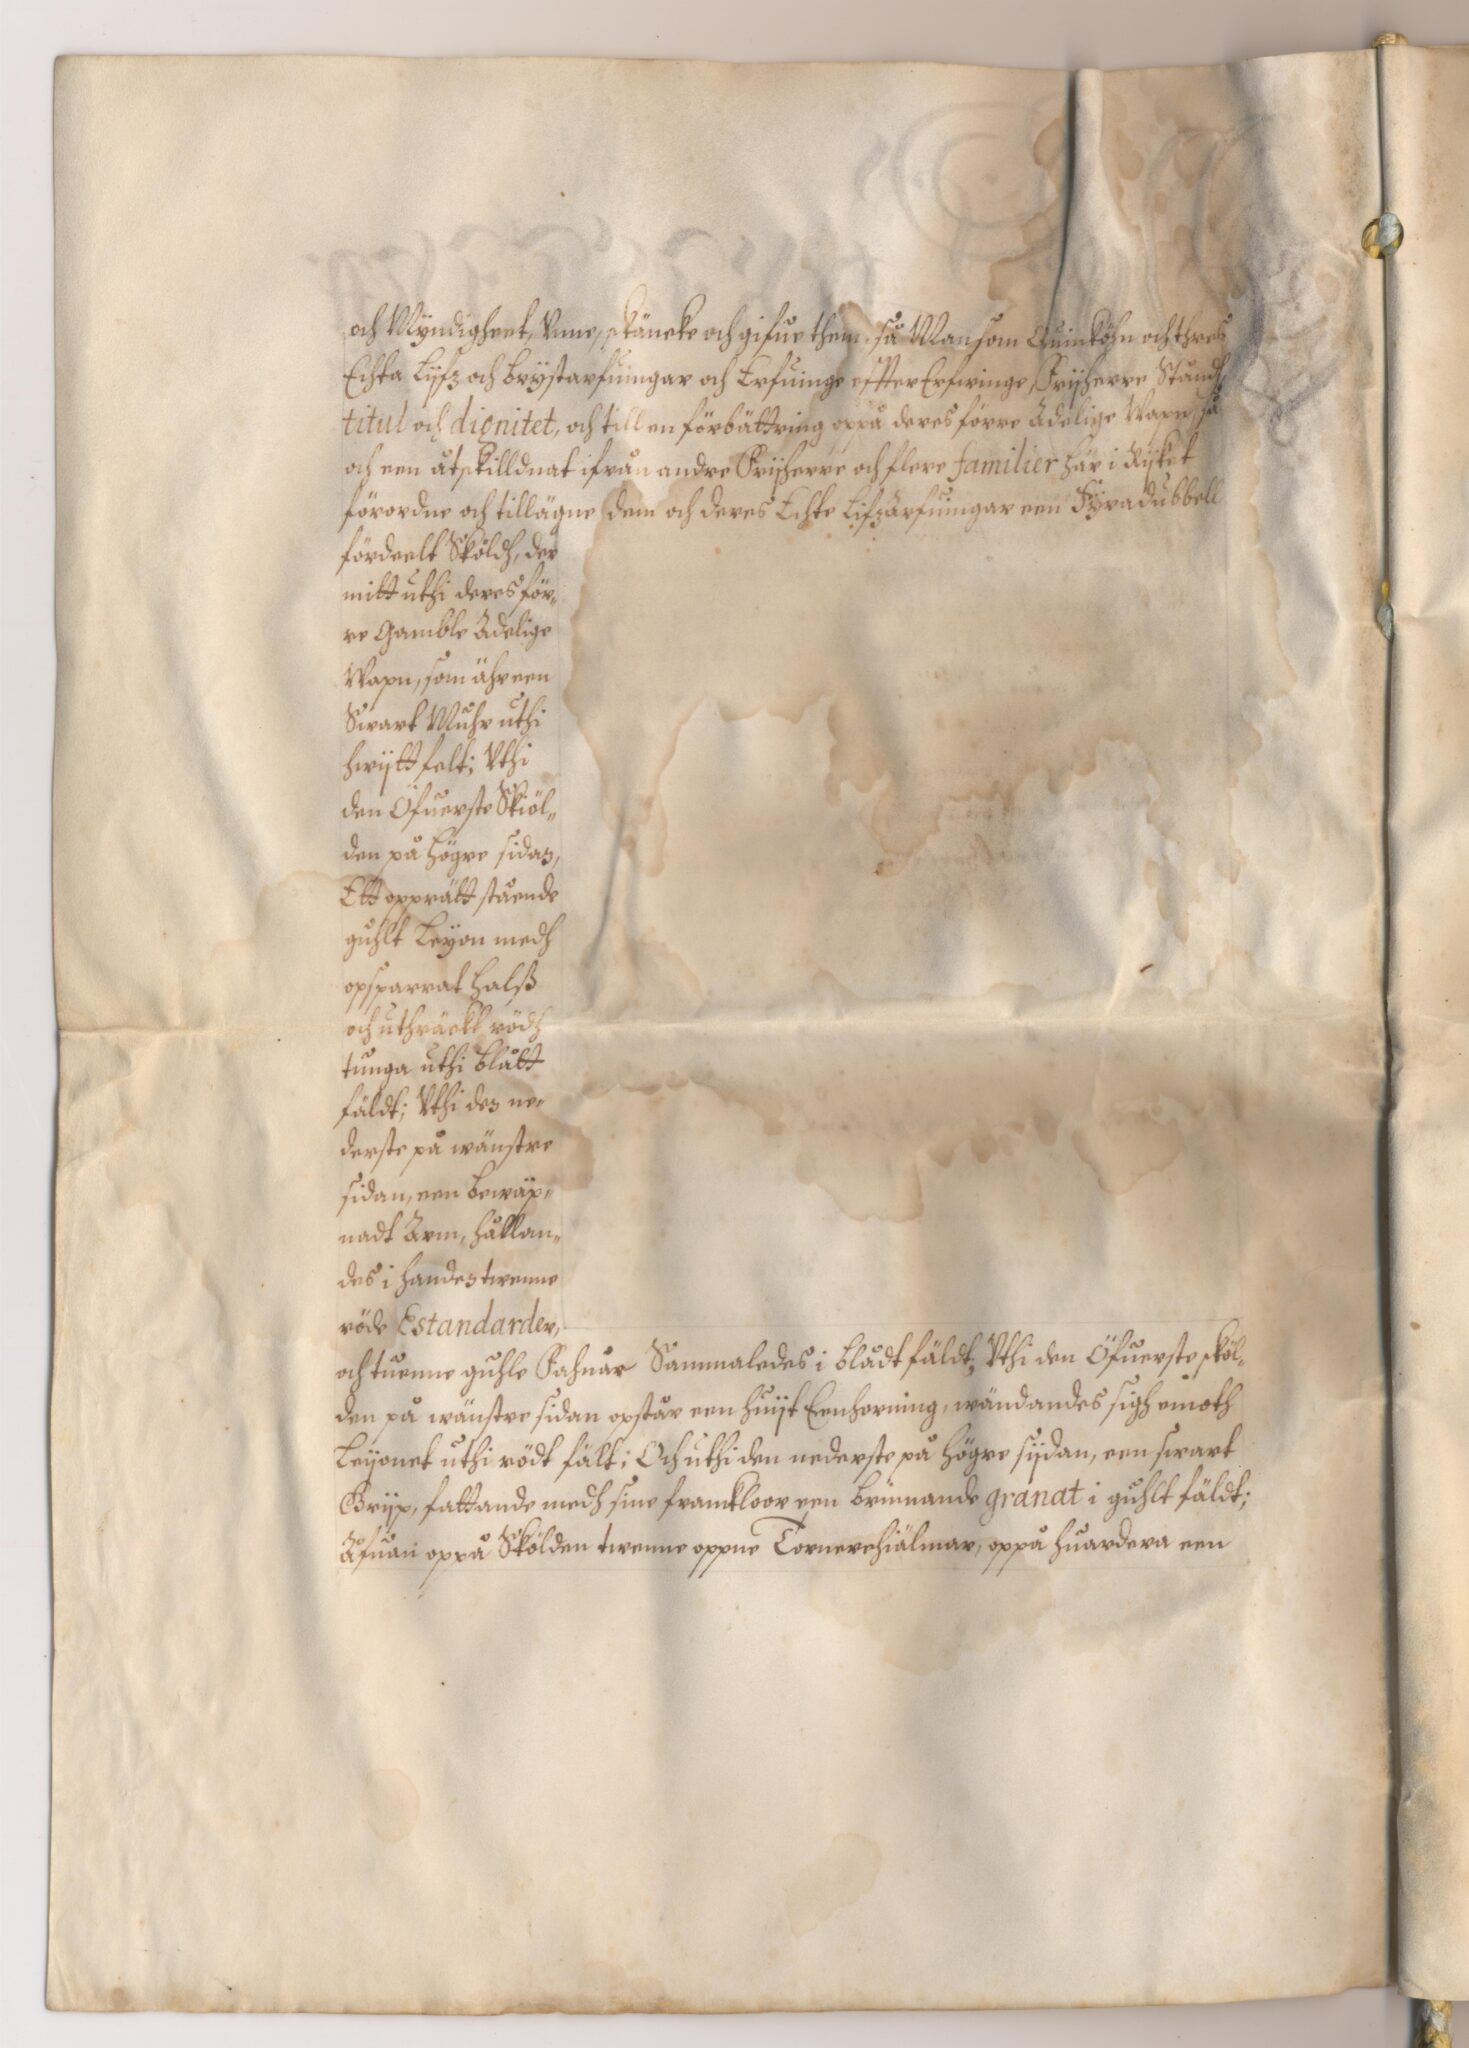 och Myndigheet, Unne, skäncke och gifue them så Man som Quinköhn och thres
Echta Lijfz och brystarfuingar och Erfuinge effter Erfwinge, Frijherre Ståndh,
titul och dignitet, och till en förbättring oppå deres förre Adelige Wapn, så
och een åtskilldnat ifrån andre Frijherre och flere familier här i Rijket
förordne och tillägne dem och deres Echte Lifzarfuingar een Fyradubbell
fördeelt Sköldh, der
mitt uthi deres för„
re Gamble Adelige
Wapn, som ähr een
Swart Muhr uthi
hwijtt felt; Uthi
den Öfuerste Skiöl„
den på högre sidan,
Ett opprätt stående
guhlt Leyon medh
opsparrat halß
och uthräckt rödh
tunga uthi blått
fäldt; Uthi den ne„
derste på wänstre
sidan, een bewäp„
nadt Arm, hållan„
des i handen twenne
röde Estandarder,
och tuenne guhle Fahnar Sammaledes i blådt fäldt; Uthi den Öfuerste sköl„
den på wänstre sidan opstår een huijt Eenhorning, wändandes sigh emoth
Leyonet uthi rödt fält; Och uthi den nederste på högre sijdan, een swart
Grijp, fattande medh sine framkloor een brinnande granat i guhlt fäldt;
Åfuan oppå Skölden twenne oppne Tornerehiälmar, oppå huardera een